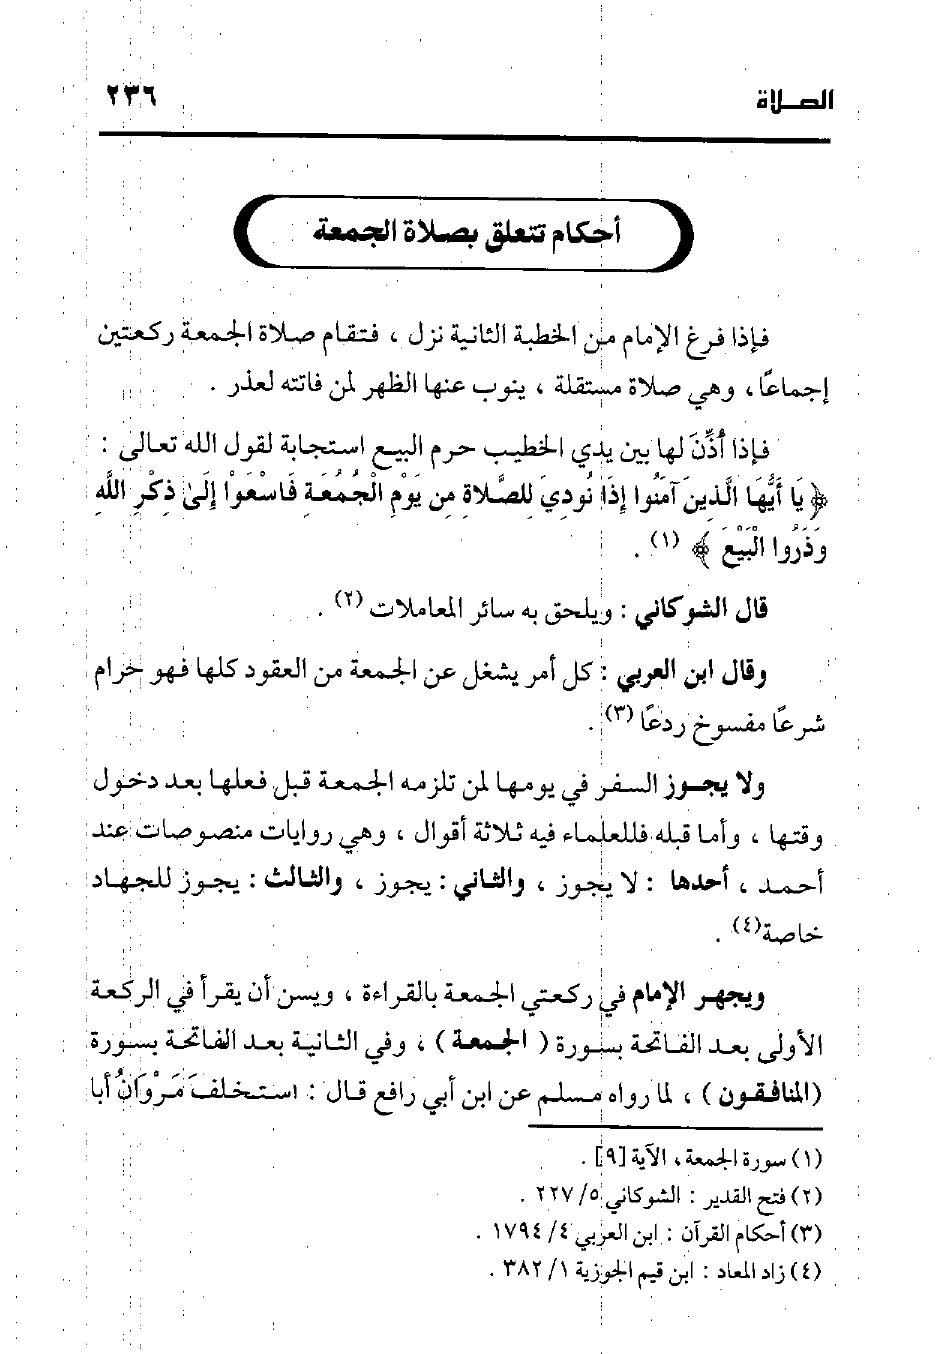 الصلاة
٢٣٦
أحكام تتعلق بصلاة الجمعة
فإذا فرغ الإمام من الخطبة الثانية نزل ، فتقام صلاة الجمعة ركعتين
إجماعًا ، وهي صلاة مستقلة ، ينوب عنها الظهر لمن فاتته لعذر .
فإذا أُذِّنَ لها بين يدي الخطيب حرم البيع استجابة لقول الله تعالى :
﴿ يَا أَيُّهَا الَّذِينَ آمَنُوا إِذَا نُودِيَ لِلصَّلَاةِ مِن يَوْمِ الْجُمُعَةِ فَاسْعَوْا إِلَىٰ ذِكْرِ اللَّهِ
وَذَرُوا الْبَيْعَ ﴾ (١) .
قال الشوكاني : ويلحق به سائر المعاملات (٢) .
وقال ابن العربي : كل أمر يشغل عن الجمعة من العقود كلها فهو حرام
شرعًا مفسوخ ردعًا (٣) .
ولا يجوز السفر في يومها لمن تلزمه الجمعة قبل فعلها بعد دخول
وقتها ، وأما قبله فللعلماء فيه ثلاثة أقوال ، وهي روايات منصوصات عند
أحمد ، أحدها : لا يجوز ، والثاني : يجوز ، والثالث : يجوز للجهاد
خاصة(٤) .
ويجهر الإمام في ركعتي الجمعة بالقراءة ، ويسن أن يقرأ في الركعة
الأولى بعد الفاتحة بسورة ( الجمعة ) ، وفي الثانية بعد الفاتحة بسورة
(المنافقون ) ، لما رواه مسلم عن ابن أبي رافع قال : استخلفَ مَرْوَانُ أبا
(١) سورة الجمعة ، الآية [٩] .
(٢) فتح القدير : الشوكاني ٥/ ٢٢٧ .
(٣) أحكام القرآن : ابن العربي ٤/ ١٧٩٤ .
(٤) زاد المعاد : ابن قيم الجوزية ١/ ٣٨٢ .